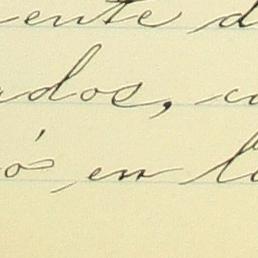 ente d
ados, c
ó, en l